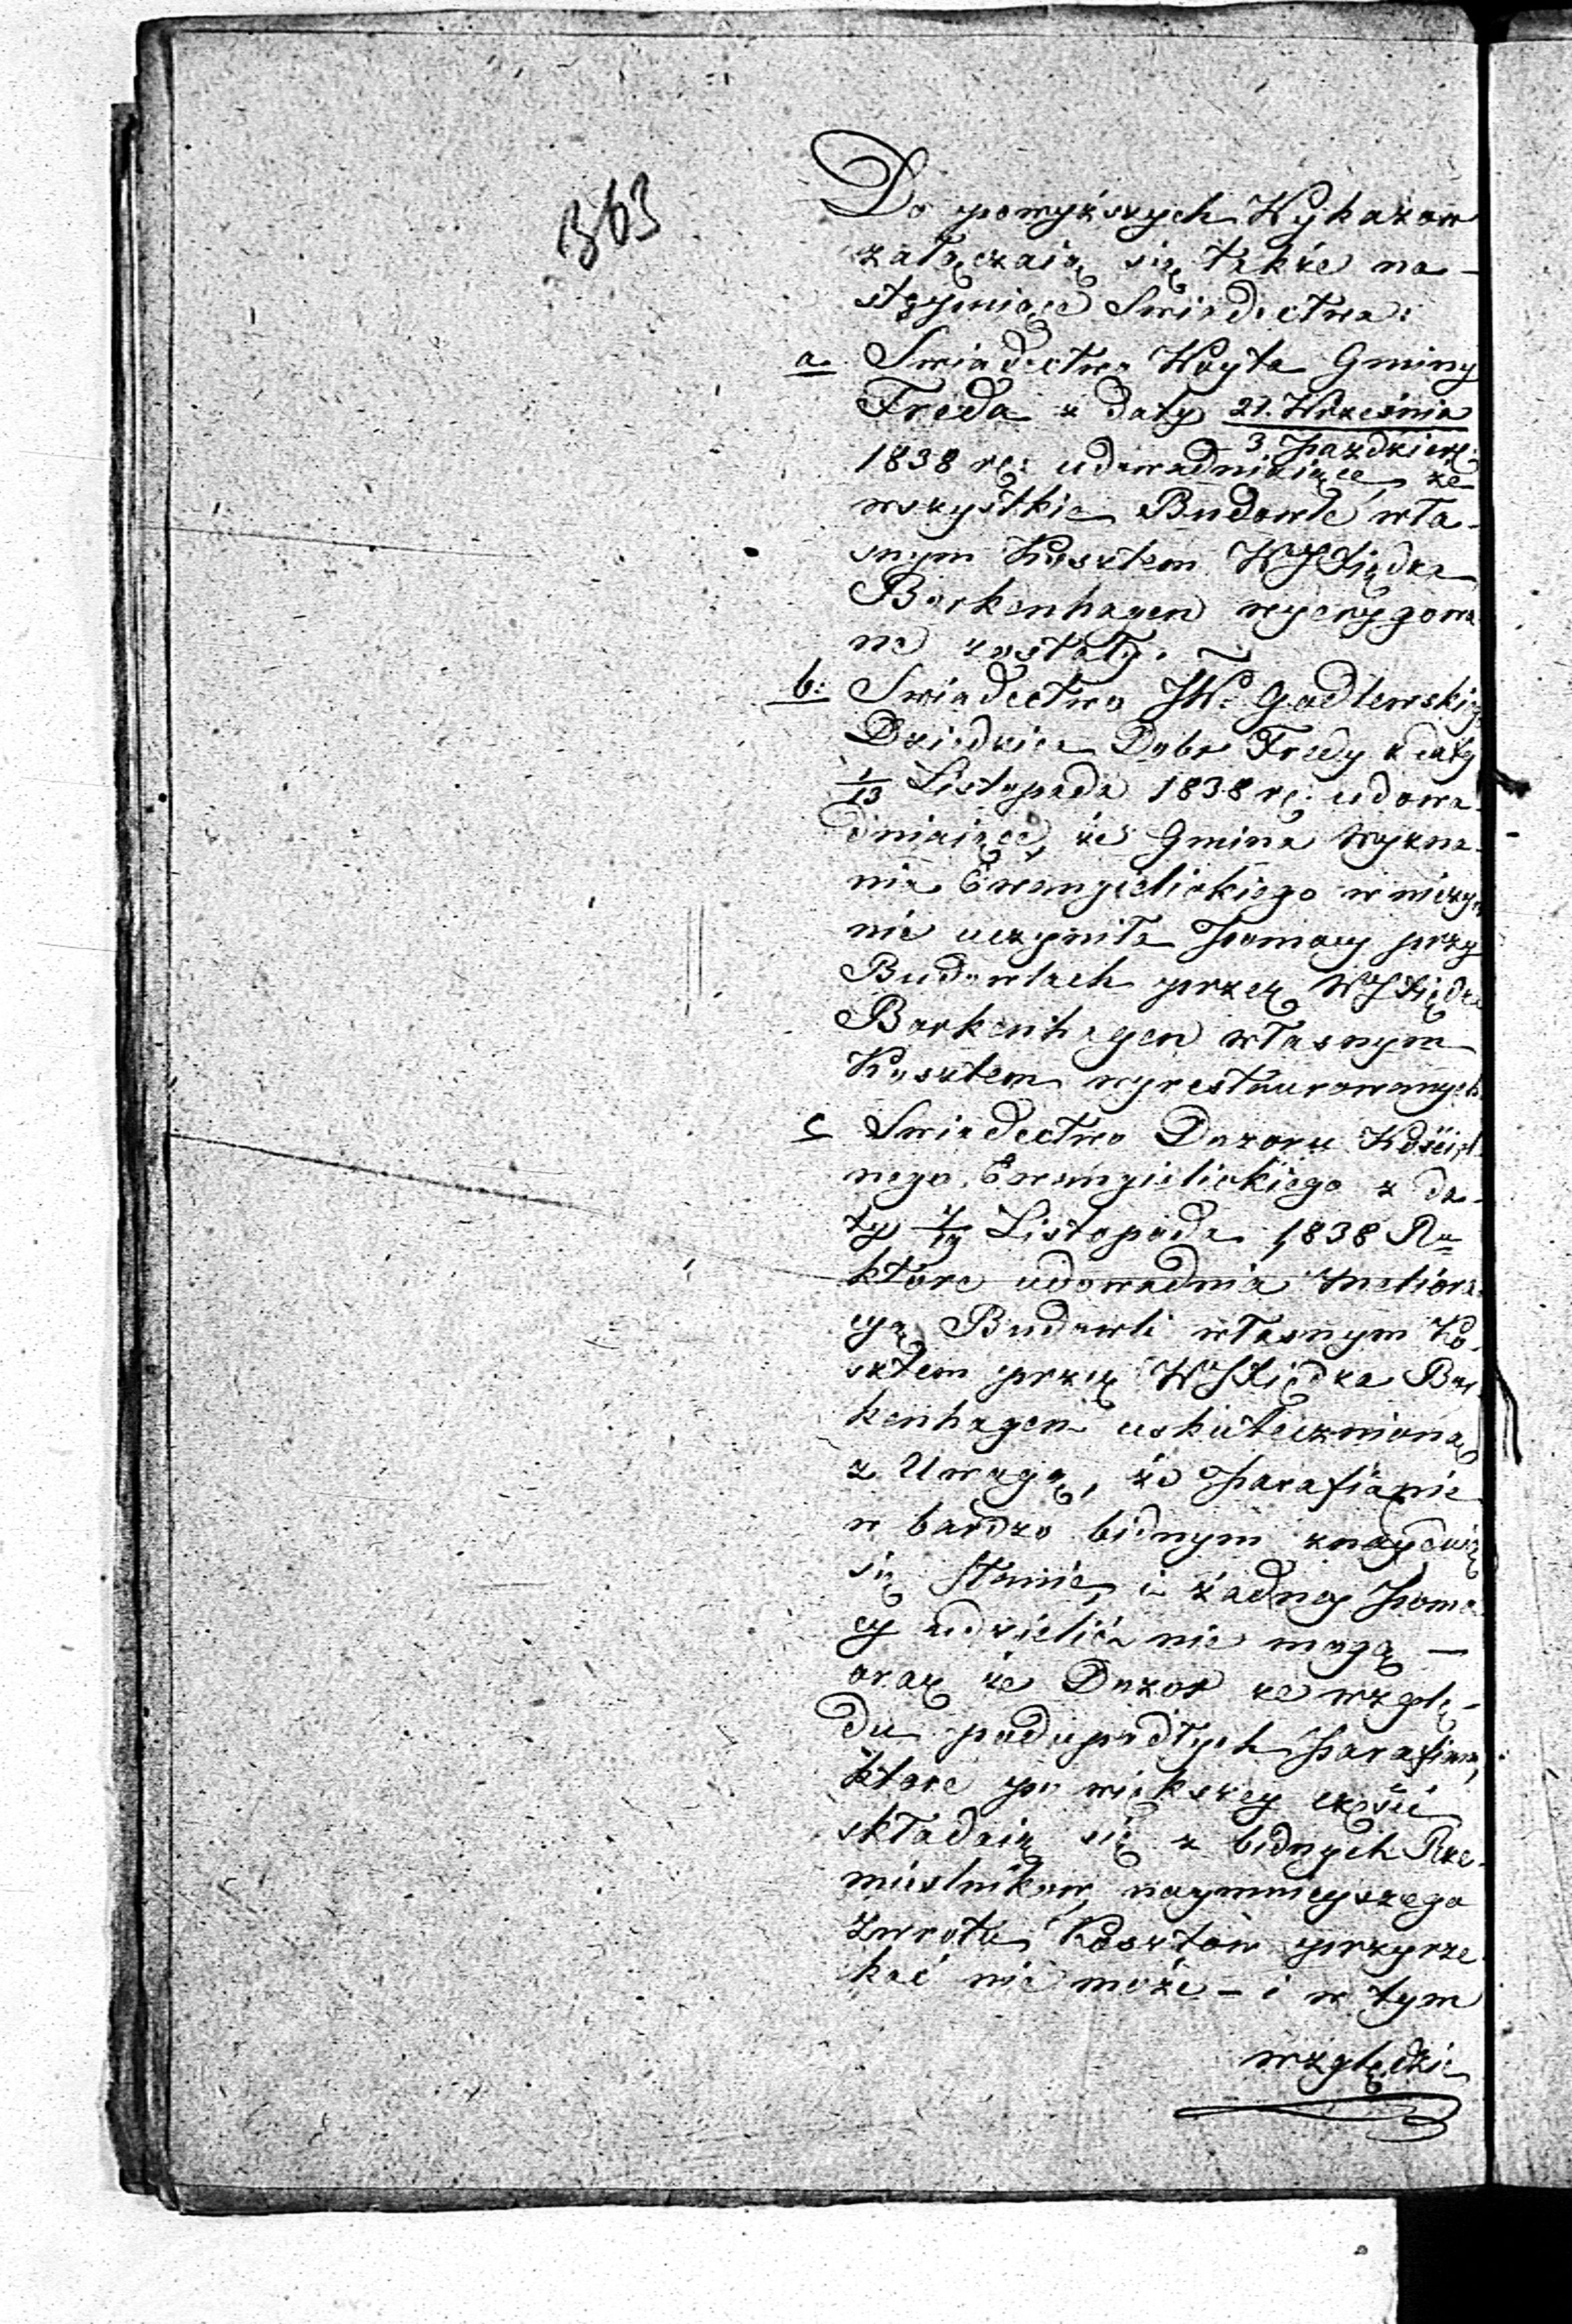 363
Do powyższych Wykazow
załączaią się także na-
stępuiące Swiadectwa:
a. Swiadectwo Woyta Gminy
Freda z daty 21. Września
3. Paździer:
1838 r: udowadniaiące że
wszystkie Budowle wła-
snym Kosztem WJXiędza
Barkenhagen wyerygowa
ne zostały. ~
b: Swiadectwo JW: Godlewskiego
Dziedzica Dobr Fredy z daty
1/13 Listopada 1838 r: udowa-
dniaiące, że Gmina Wyzna-
nia Ewangielickiego w niczym
nie uczyniła Pomocy przy
Budowlach przez WJXiędza
Barkenhagen własnym
Kosztem wyrestaurowanych
c Swiadectwo Dozoru Kościel-
nego Ewangielickiego z da-
ty 7/19 Listopada 1838 Ru
ktore udowadnia Meliora-
cyą Budowli własnym Ko-
sztem przez WJXiędza Bar-
kenhagen uskutecznioną
z Uwagą, że Parafianie
w bardzo bidnym znayduią
się Stanie, i żadney Pomo-
cy udzielić nie mogą —
oraz że Dozor ze wzglę-
du podupadłych Parafian,
ktore po większey części
składaią się z bidnych Rze-
mieslnikow, naymnieyszego
zwrotu Kosztów przyrze-
kać nie może - i w tym
względzie